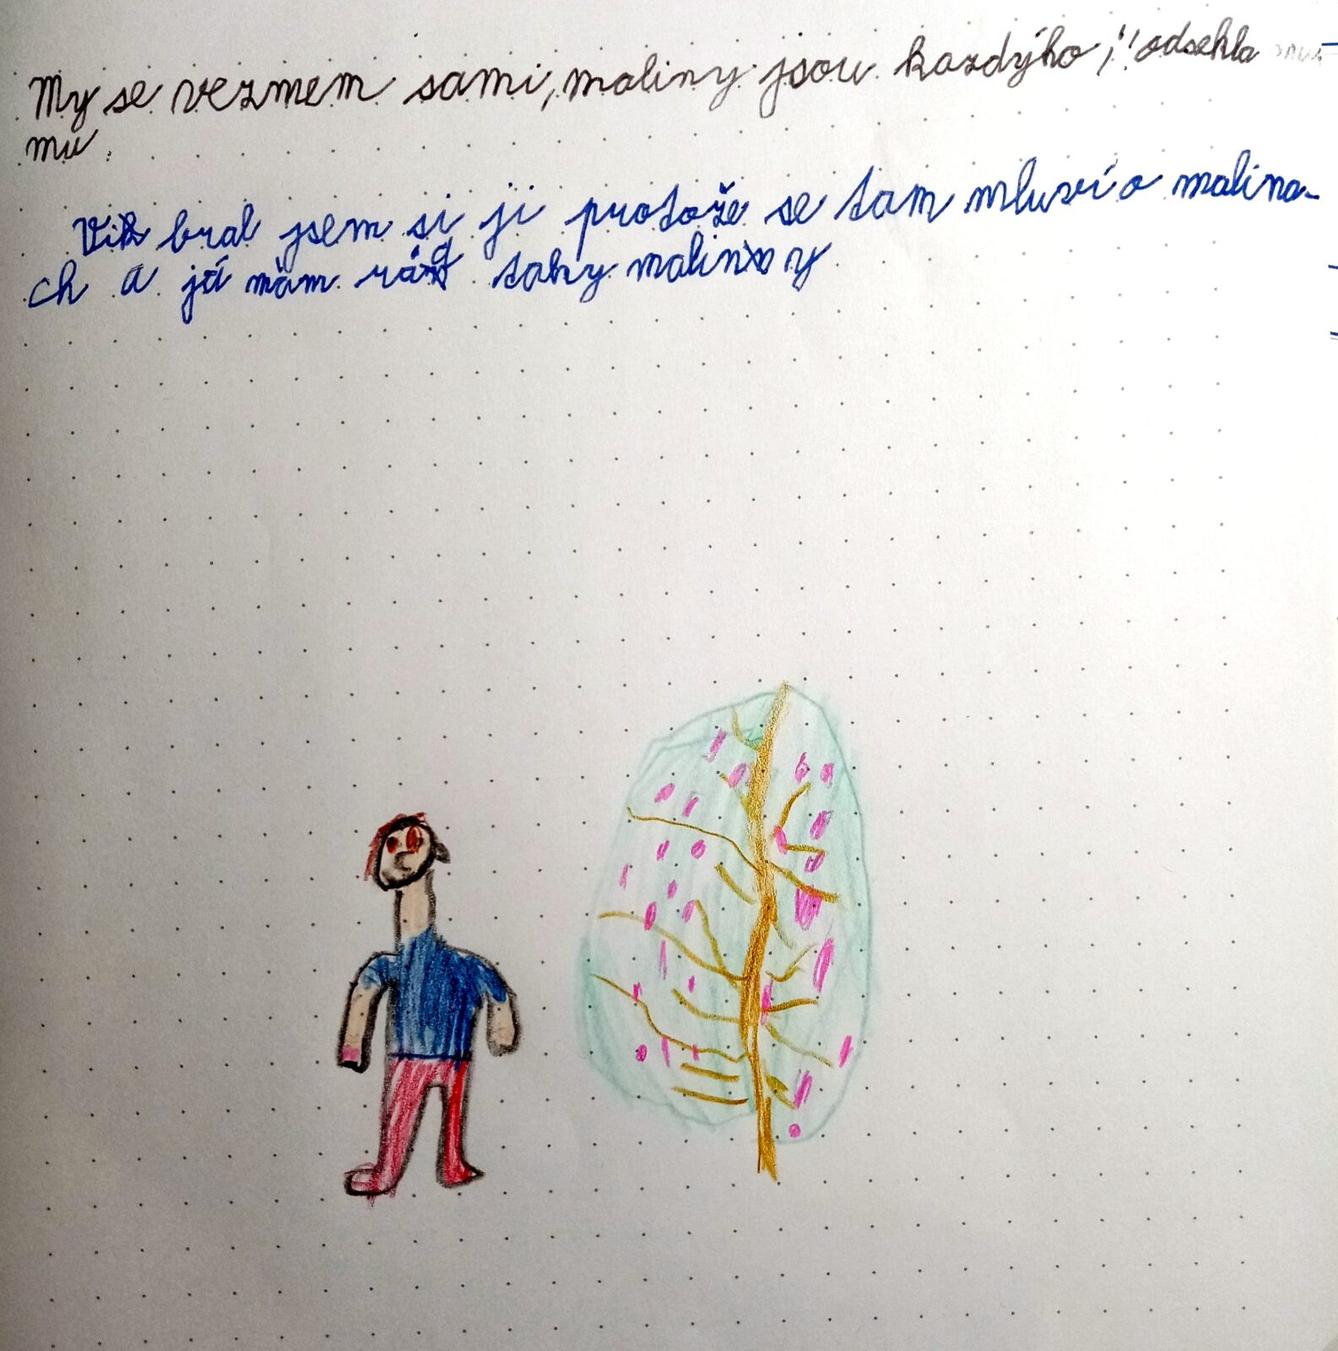 My se vezmem sami, maliny jsou každýho," odsekla
mu.
Vib bral jsem si ji protože se tam mluví o malina-
ch a já mám rád taky maliny